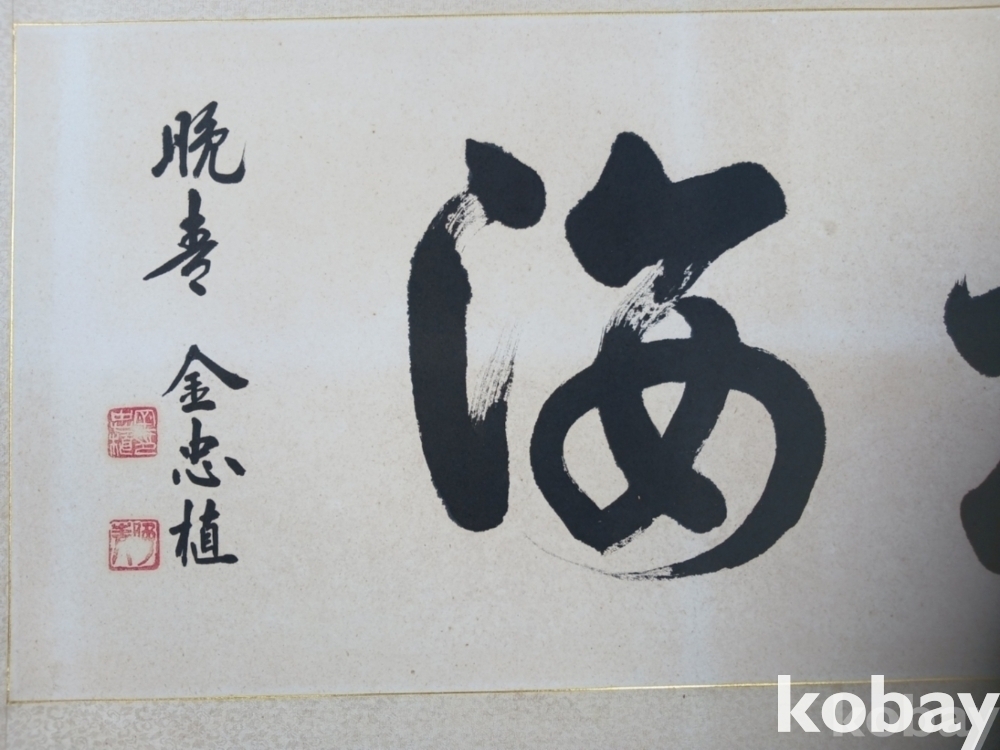 海
晩春 金忠植
kobay